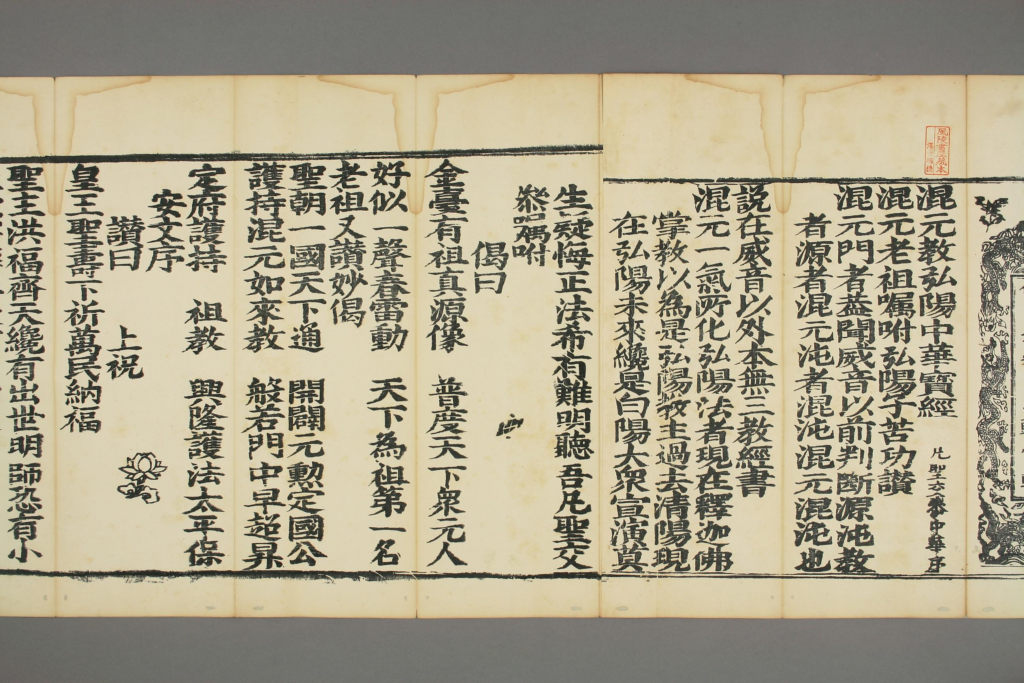 混元教弘陽中華寶經
混元老祖嘱咐弘陽子苦功讃
混元門者蓋聞威音以前判斷源沌教
者源者混元沌者混沌混元混沌也
説在威音以外本無三教經書
混元一氣所化弘陽法者現在釋迦佛
掌教以為是弘陽教主過去清陽現
在弘陽未來纔是白陽大衆宣演莫
生疑悔正法希有難明聽吾凢聖交
嘱咐
偈曰
金臺有祖真源像 普度天下衆元人
好似一聲春雷動 天下為祖第一名
老祖又讃妙偈
聖朝一國天下通 開闢元勲定國公
護持混元如來教 般若門中早超昇
定府護持 祖教 興隆護法太平保
安文序
讃曰 上祝
皇王聖壽下祈萬民納福
聖主洪福齊天纔有出世明師恐有小